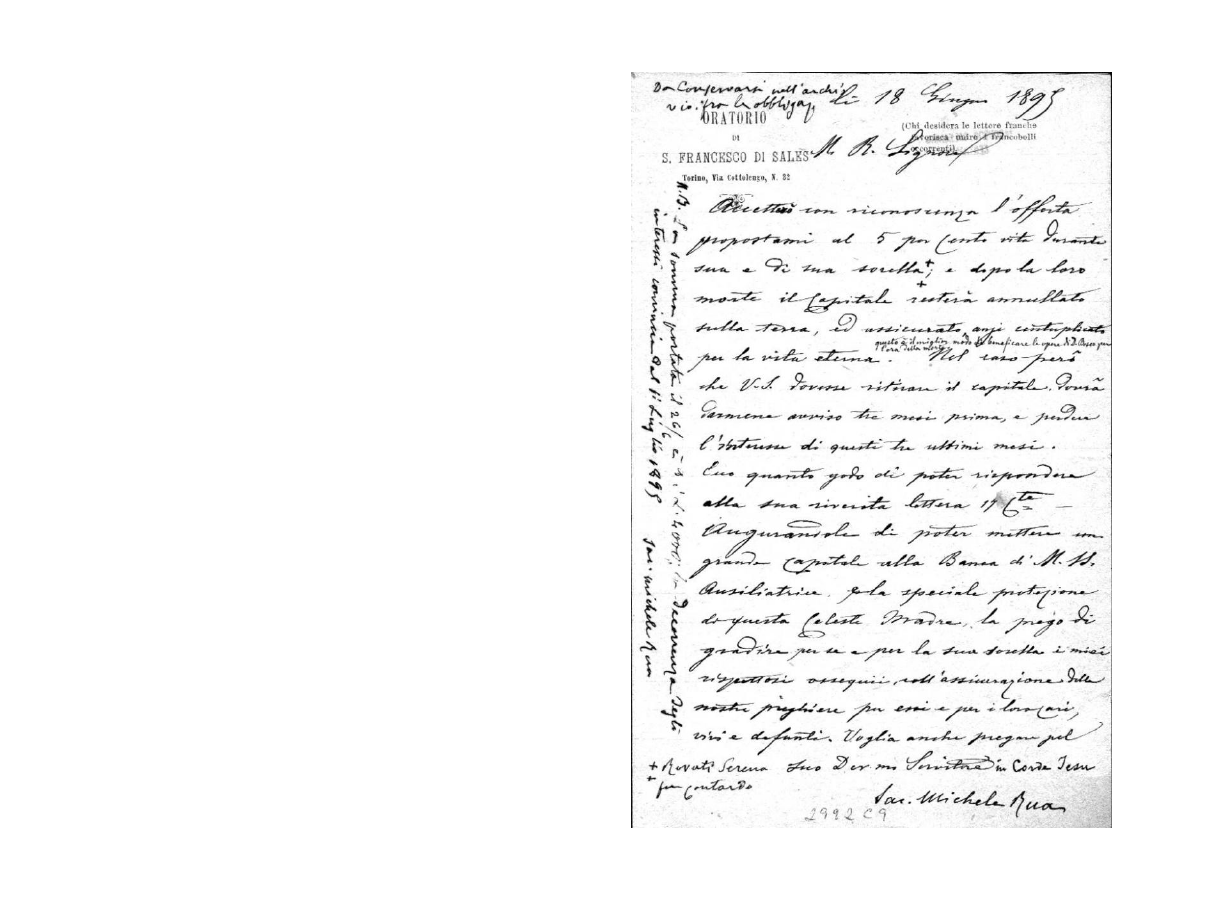 Da Conservarsi nell'archi
vio. fra le obbligaz.
li 18 Giugno 1895
ORATORIO
DI
S. FRANCESCO DI SALES
Torino, Via Cottolengo, N. 32
(Chi desidera le lettere franche
favorisca unire i francobolli
occorrenti).
M. R. Signore
Accetterò con riconoscenza l'offerta
propostami al 5 per Cento vita durante
sua e di sua sorella+; e dopo la loro
morte il Capitale resterà annullato
sulla terra, ed assicurato, anzi centuplicato
questo è il miglior modo di beneficare le opere di D. Bosco per
l'ora della morte
per la vita eterna. Nel caso però
che V.S. dovesse ritirare il capitale, dovrà
darmene avviso tre mesi prima, e perdere
l'interesse di questi tre ultimi mesi.
Ecco quanto godo di poter rispondere
alla sua riverita lettera 17 Cte
Augurandole di poter mettere un
grande capitale alla Banca di M. SS.
Ausiliatrice, e la speciale protezione
di questa Celeste Madre, la prego di
gradire per se e per la sua sorella i miei
rispettosi ossequii, coll'assicurazione delle
nostre preghiere per essi e per i loro cari,
vivi e defunti. Voglia anche pregare pel
suo Dev.mo Servitore in Corde Jesu
Sac. Michele Rua
+ Rovati Serena
+ fu Contardo
N.B. La somma portata il 26/6 è di L. 4000; la decorrenza degli
interessi comincia dal 1° Luglio 1895 Sac. Michele Rua
2992 C9